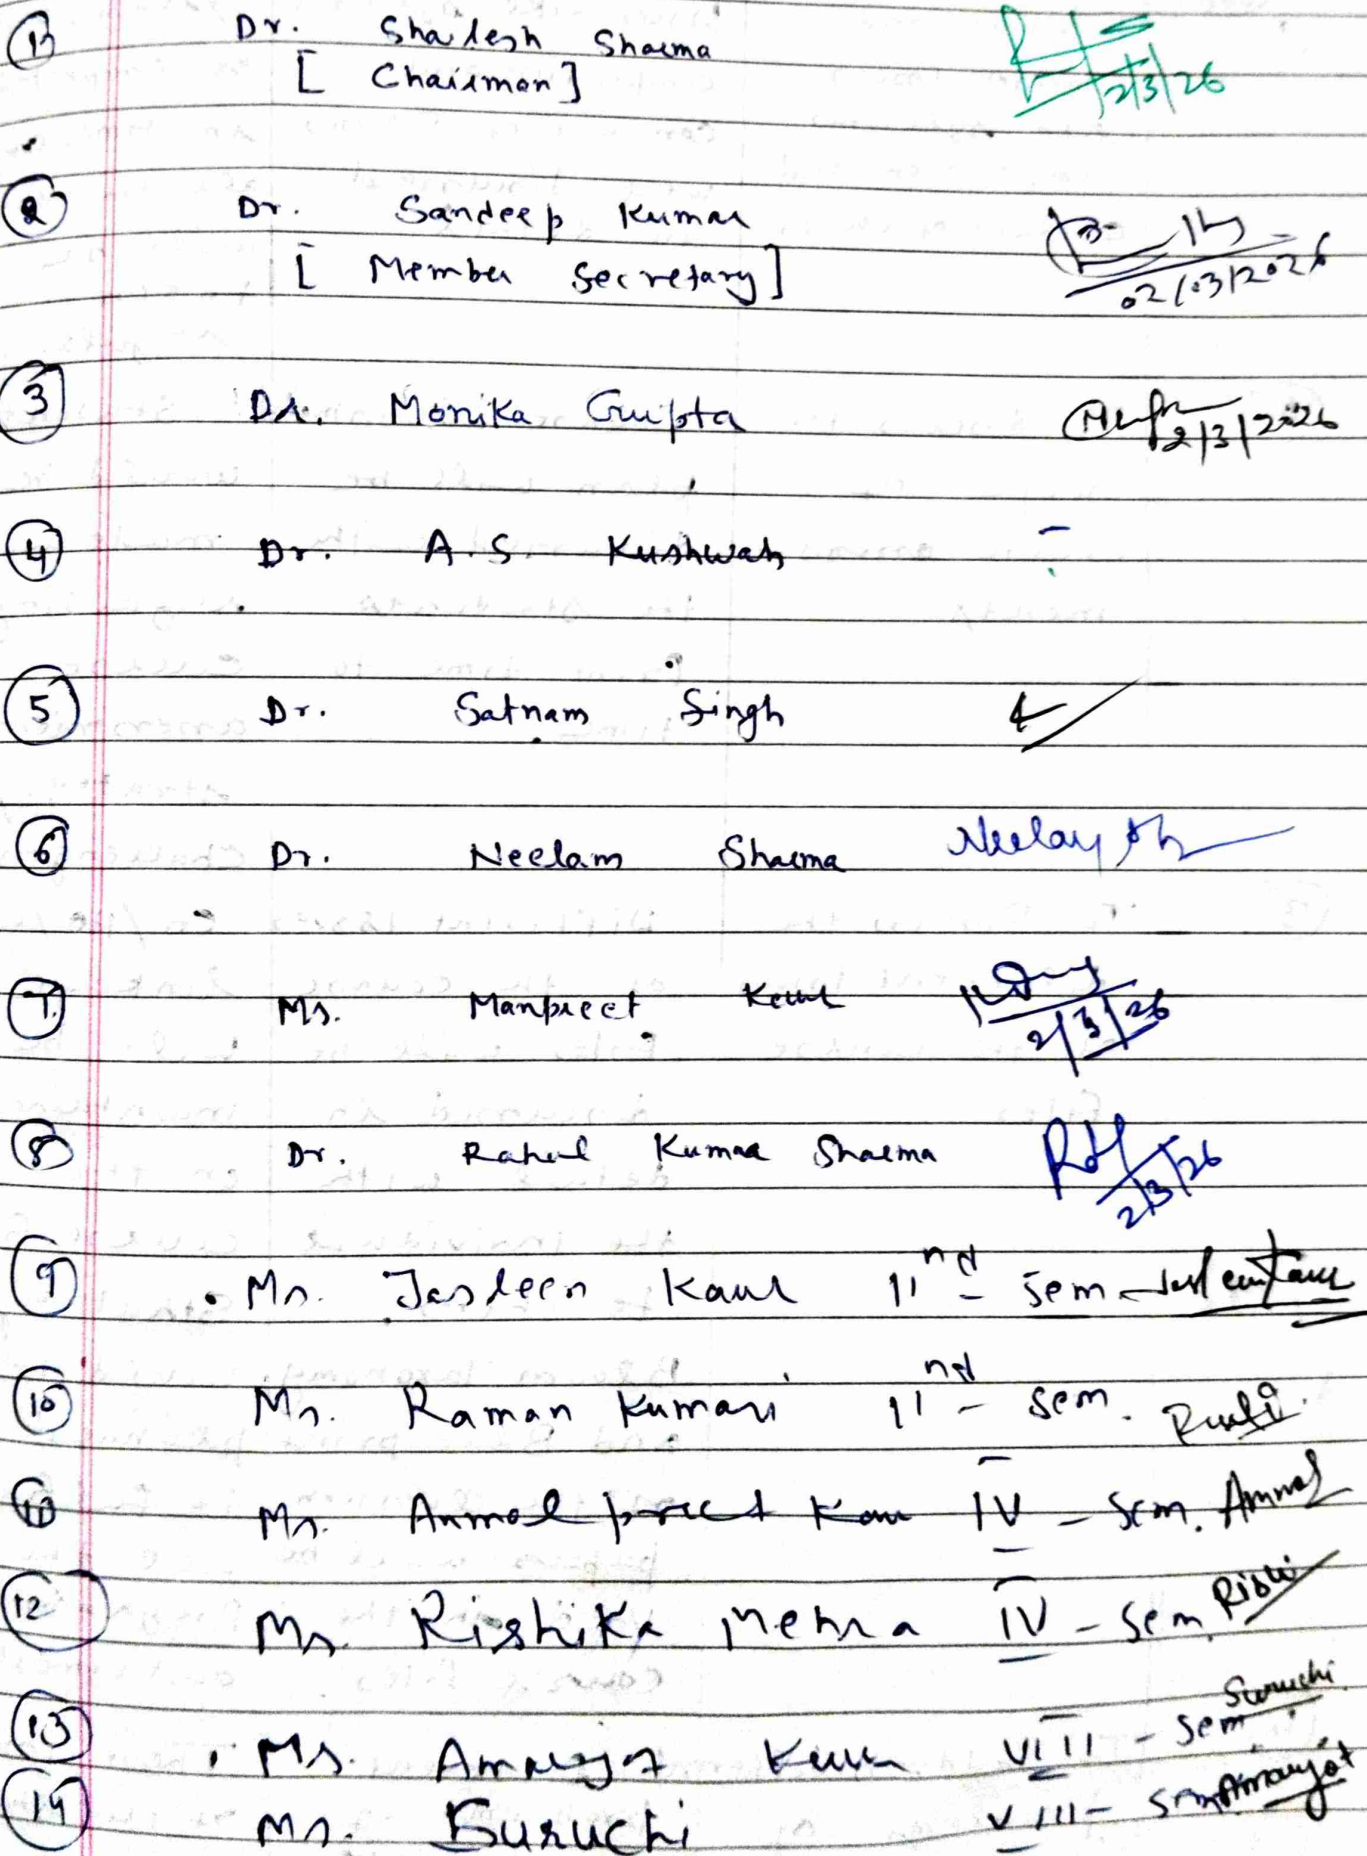 1 Dr. Shailesh Sharma 2/3/26
[ Chairman ]
2 Dr. Sandeep Kumar
[ Member Secretary ] 02/03/2026
3 Dr. Monika Gupta 2/3/2026
4 Dr. A.S Kushwah -
5 Dr. Satnam Singh
6 Dr. Neelam Sharma
7. Ms. Manpreet Kaur 2/3/26
8 Dr. Rahul Kumar Sharma 2/3/26
9 Ms. Jasleen Kaur IInd - Sem Jasleen Kaur
10 Ms. Raman Kumari IInd - Sem.
11 Ms. Anmol preet Kaur IV - Sem. Anmol
12 Ms. Rishika Mehra IV - Sem Rishi
13 Ms. Amarjot Kaur VIII - Sem Suruchi
14 Ms. Suruchi VIII - Sem Amarjot